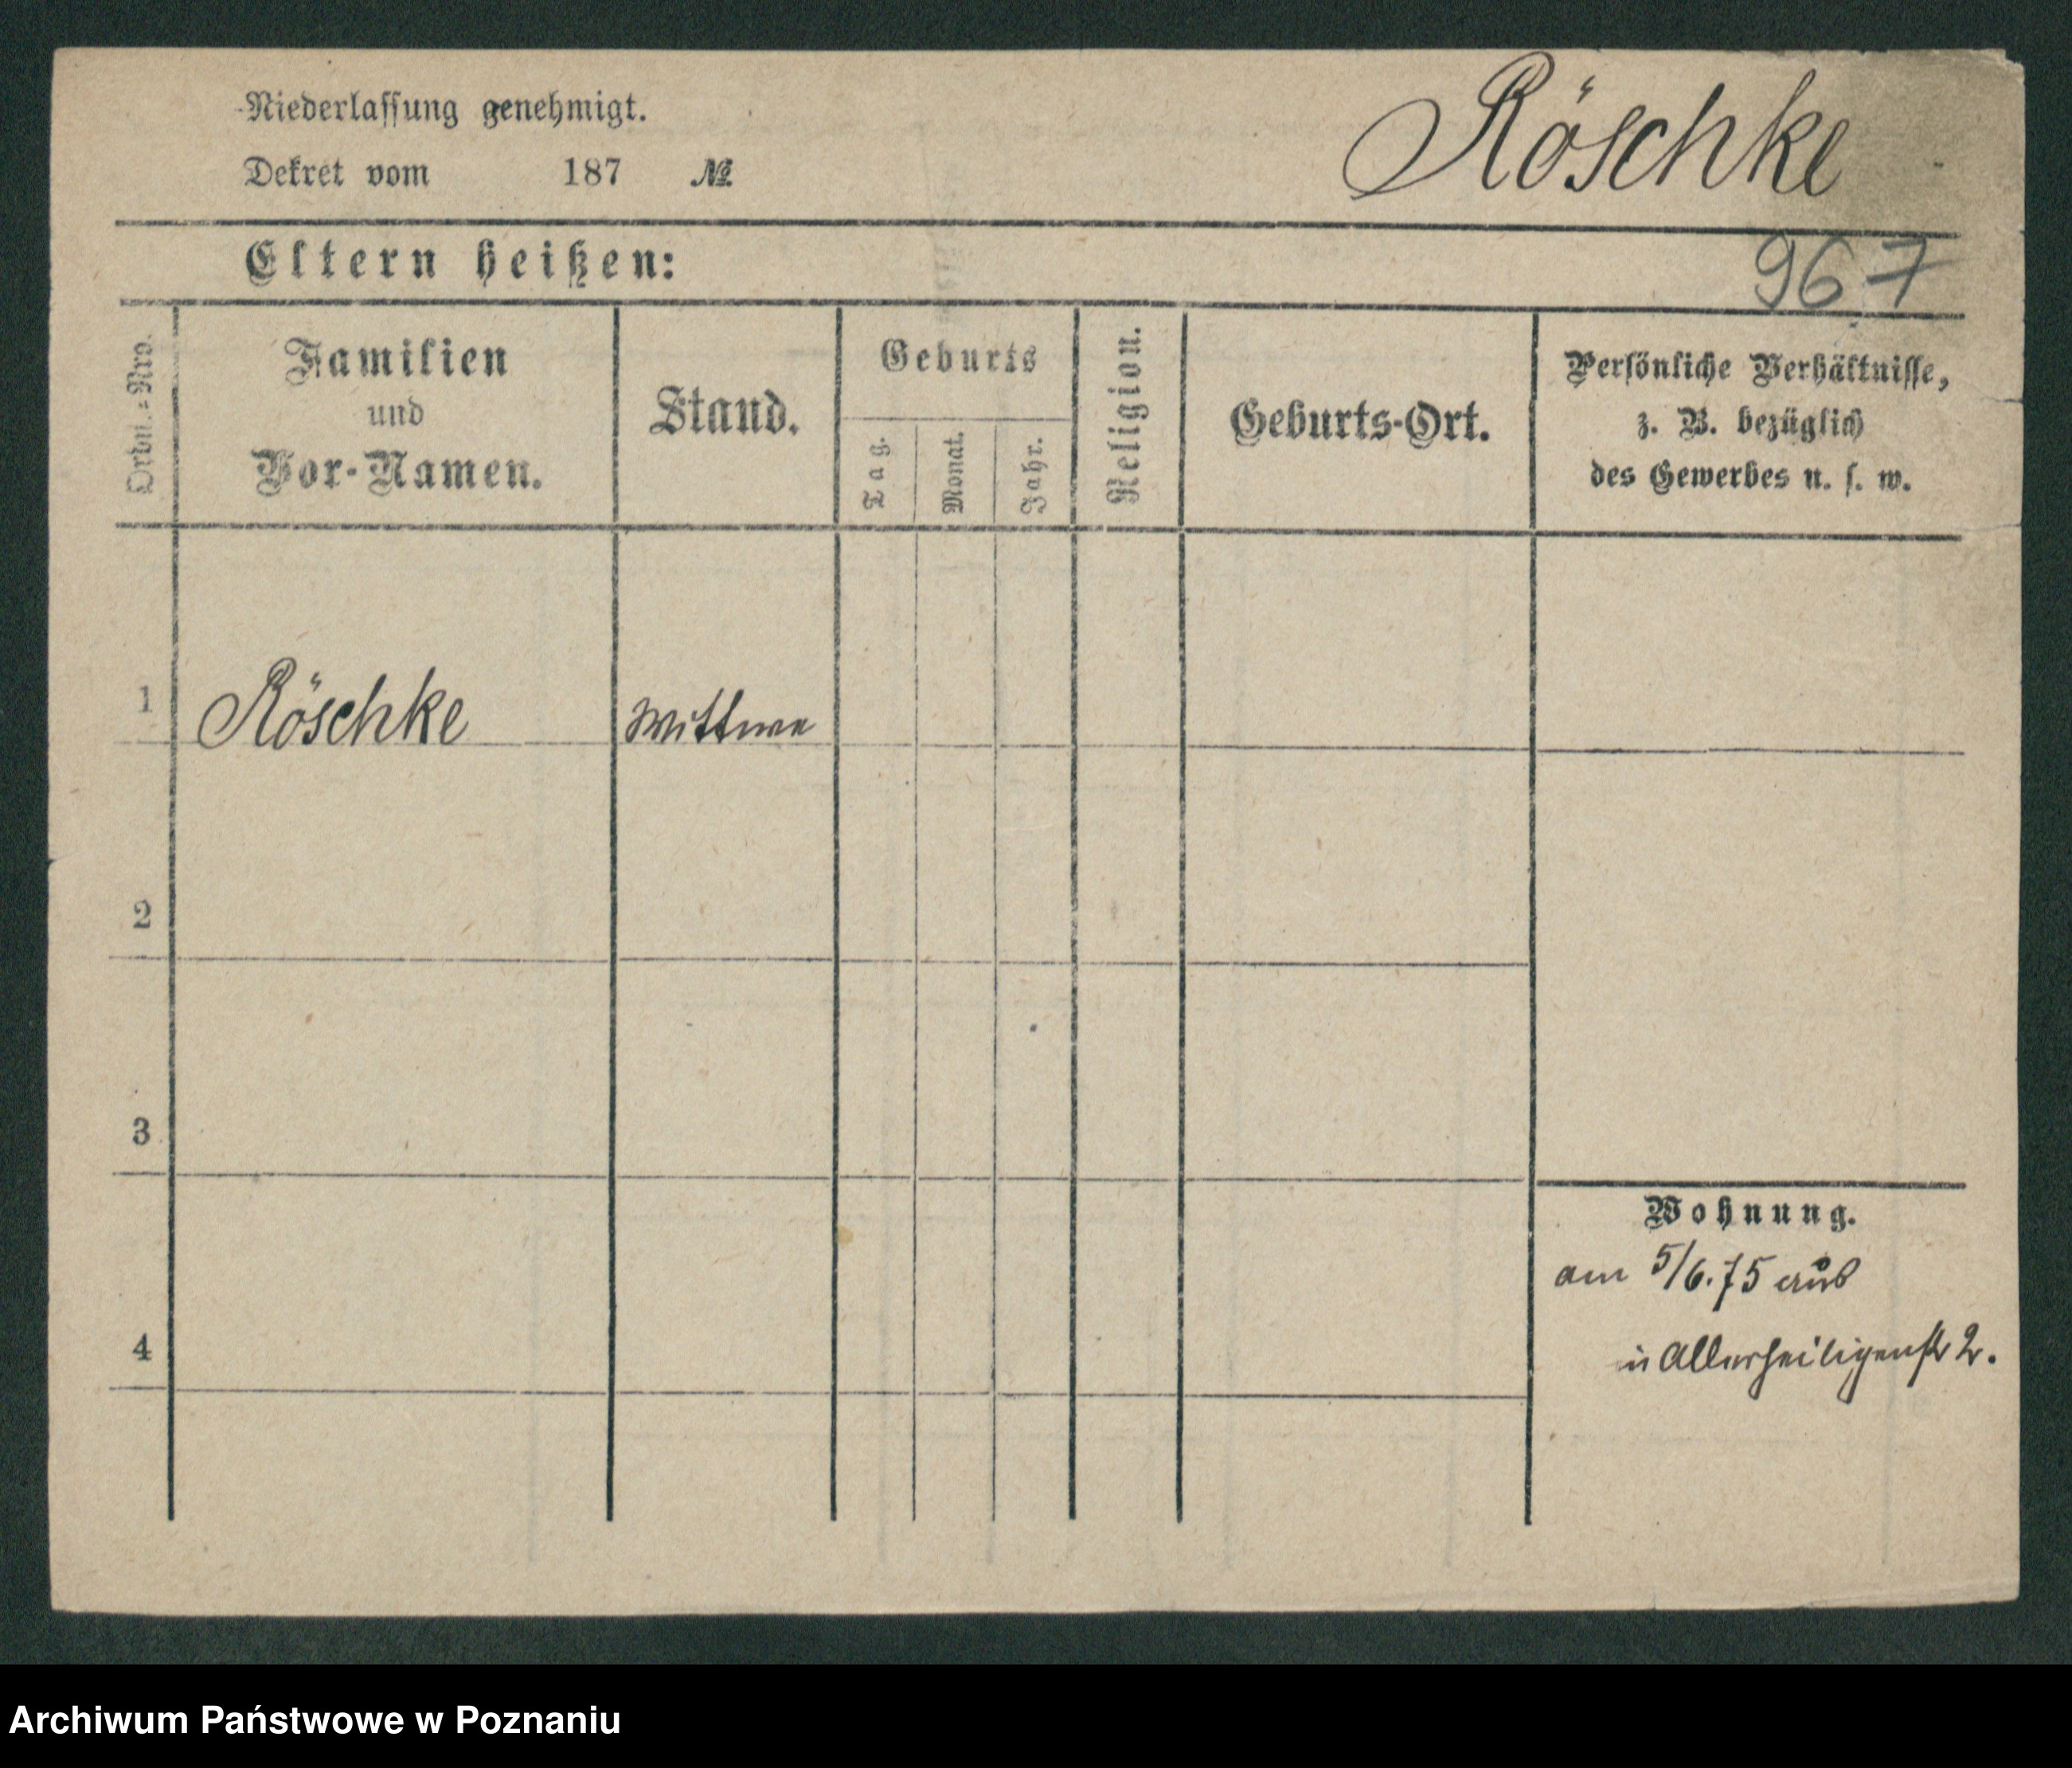 Niederlassung genehmigt.
Röschke
Dekret vom 187 №
Eltern heißen:
967
Ordn.=Nro.
Familien
und
Vor-Namen.
Stand.
Geburts
Tag.
Monat.
Jahr.
Religion.
Geburts-Ort.
Persönliche Verhältnisse,
z. B. bezüglich
des Gewerbes u. s. w.
1 Röschke Wittwe
2
3
Wohnung.
am 5/6.75 aus
Allerheiligenstr 2.
4
Archiwum Państwowe w Poznaniu